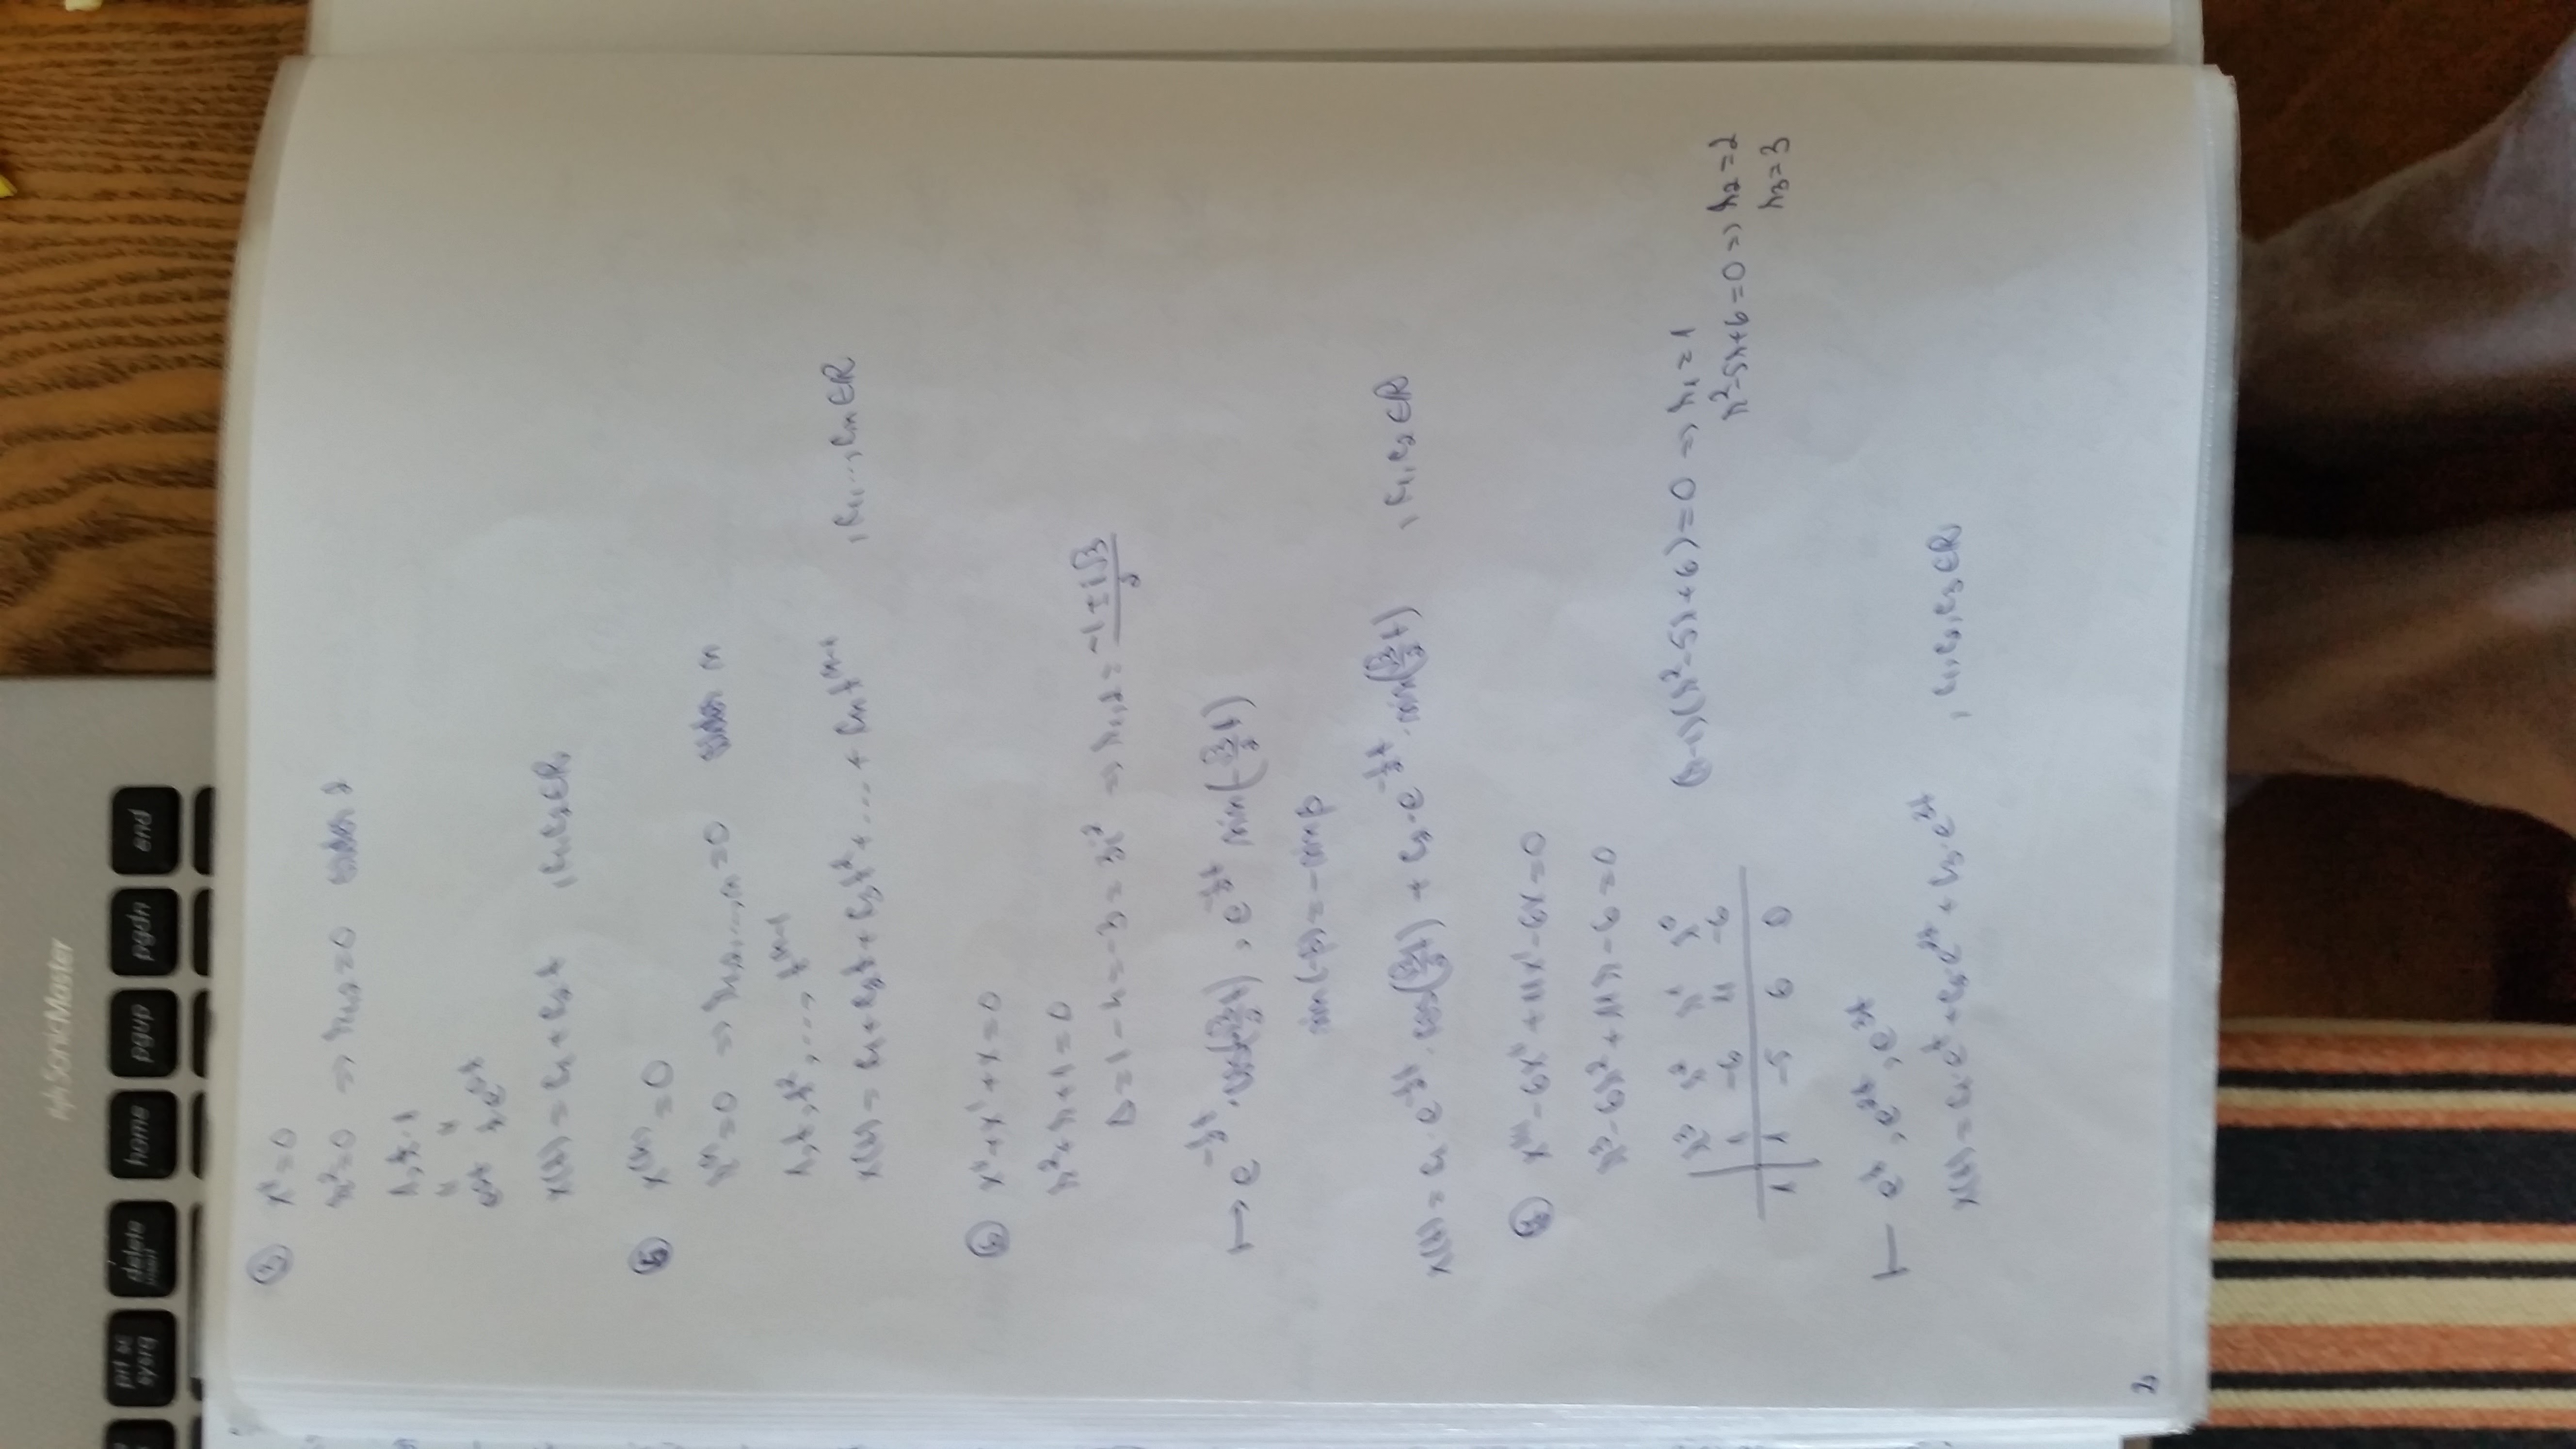 SonicMaster
prt sc sysrq delete insert home pgup pgdn end
③ x'' = 0
r² = 0 => r₁,₂ = 0 order 2
1, t·1
e^{0t} t e^{0t}
x(t) = c₁ + c₂ t , c₁, c₂ ∈ R
⑤ x^{(n)} = 0
r^n = 0 => r₁,₂,...,n = 0 order n
1, t, t², ..., t^{n-1}
x(t) = c₁ + c₂t + c₃t² + ... + cₙ t^{n-1} , c₁, ..., cₙ ∈ R
⑥ x'' + x' + x = 0
r² + r + 1 = 0
Δ = 1 - 4 = -3 = 3i² => r₁,₂ = (-1 ± i√3)/2
↦ e^{-½t} · cos(√3/2 t) , e^{-½t} sin(-√3/2 t)
sin(-β) = -sin β
x(t) = c₁ · e^{-½t} · cos(√3/2 t) + c₂ · e^{-½t} · sin(√3/2 t) , c₁, c₂ ∈ R
x''' - 6x'' + 11x' - 6x = 0
r³ - 6r² + 11r - 6 = 0
r³ r² r¹ r⁰
1 -6 11 -6
1 1 -5 6 0
(r-1)(r² - 5r + 6) = 0 => r₁ = 1
r² - 5r + 6 = 0 => r₂ = 2
r₃ = 3
e^t, e^{2t}, e^{3t}
x(t) = c₁·e^t + c₂·e^{2t} + c₃·e^{3t} , c₁, c₂, c₃ ∈ R
2